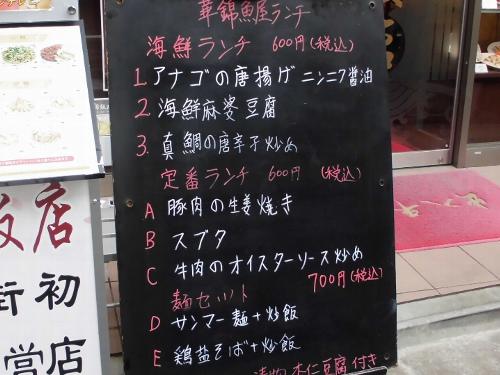 華錦魚屋ランチ
海鮮ランチ 600円(税込)
1. アナゴの唐揚げニンニク醤油
2. 海鮮麻婆豆腐
3. 真鯛の唐辛子炒め
定番ランチ 600円 (税込)
A 豚肉の生姜焼き
B スブタ
C 牛肉のオイスターソース炒め
麺セット 700円(税込)
D サンマー麺+炒飯
E 鶏塩そば+炒飯
漬物 杏仁豆腐付き
飯店
街初
営店